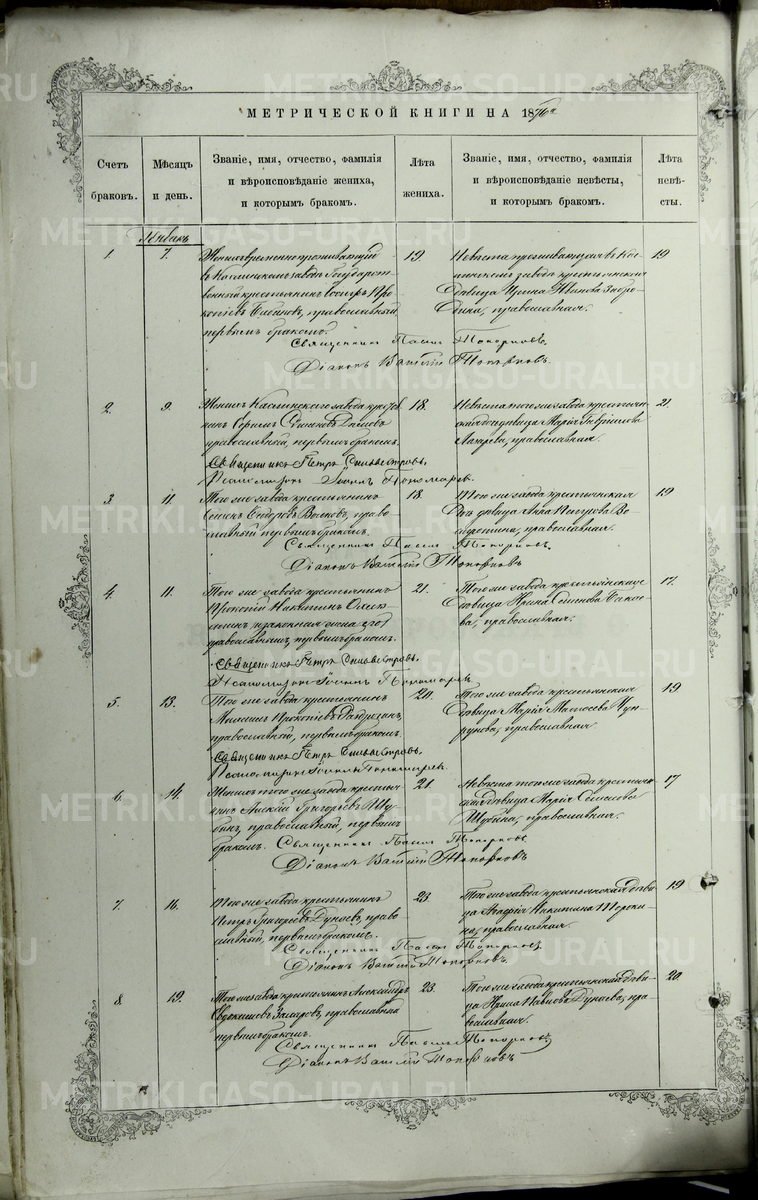 МЕТРИЧЕСКОЙ КНИГИ НА 1876 г
Счетъ браковъ.
Мѣсяцъ и день.
Званіе, имя, отчество, фамилія
и вѣроисповѣданіе жениха,
и которымъ бракомъ.
Лѣта жениха.
Званіе, имя, отчество, фамилія
и вѣроисповѣданіе невѣсты,
и которымъ бракомъ.
Лѣта невѣсты.
Январь
1. 7. 19. 19
Женихъ временно проживающій
въ Каслинскомъ заводѣ Государст-
венный крестьянинъ Про-
копіевъ православный,
первымъ бракомъ.
Невѣста проживающая въ Кас-
линскомъ заводѣ крестьянская
дѣвица Ирина Иванова
православная.
Священникъ Павелъ Топорковъ.
Діаконъ Василій Топорковъ.
2. 9. 18. 21.
Женихъ Каслинскаго завода крестья
нинъ Сергій
православный, первымъ бракомъ.
Невѣста того же завода крестьян-
ская дѣвица Марія Гаврилова
православная.
Священникъ Петръ Сильвестровъ.
Псаломщикъ Іоаннъ Пономаревъ.
3. 11. 18. 19
Того же завода крестьянинъ
Семенъ Ѳедоровъ право-
славный первымъ бракомъ.
Того же завода крестьянская
дѣвица Анна Петрова
православная.
Священникъ Павелъ Топорковъ.
Діаконъ Василій Топорковъ
4. 11. 21. 17.
Того же завода крестьянинъ
Прокопій Никитинъ
православный, первымъ бракомъ.
Того же завода крестьянская
дѣвица Ирина Семенова
православная.
Священникъ Петръ Сильвестровъ.
Псаломщикъ Іоаннъ Пономаревъ
5. 13. 20. 19
Того же завода крестьянинъ
Прокопіевъ
православный, первымъ бракомъ.
Того же завода крестьянская
дѣвица Марія
православная.
Священникъ Петръ Сильвестровъ.
Псаломщикъ Іоаннъ Пономаревъ
6. 14. 21. 17
Женихъ того же завода крестья-
нинъ Алексій Григорьевъ Шу-
бинъ, православный, первымъ
бракомъ.
Невѣста того же завода крестьян-
ская дѣвица Марія Семенова
православная.
Священникъ Павелъ Топорковъ
Діаконъ Василій Топорковъ
7. 16. 23. 19
Того же завода крестьянинъ
Петръ Григорьевъ Дунаевъ, право-
славный, первымъ бракомъ.
Того же завода крестьянская дѣви-
ца Агафія Никитина
православная.
Священникъ Павелъ Топорковъ
Діаконъ Василій Топорковъ.
8 19. 23. 20.
Того же завода крестьянинъ Александръ
Евдокимовъ Захаровъ, православный
первымъ бракомъ.
Того же завода крестьянская дѣви-
ца Ирина Павлова Дунаева, пра-
вославная.
Священникъ Павелъ Топорковъ
Діаконъ Василій Топорковъ
METRIKI.GASO-URAL.RU